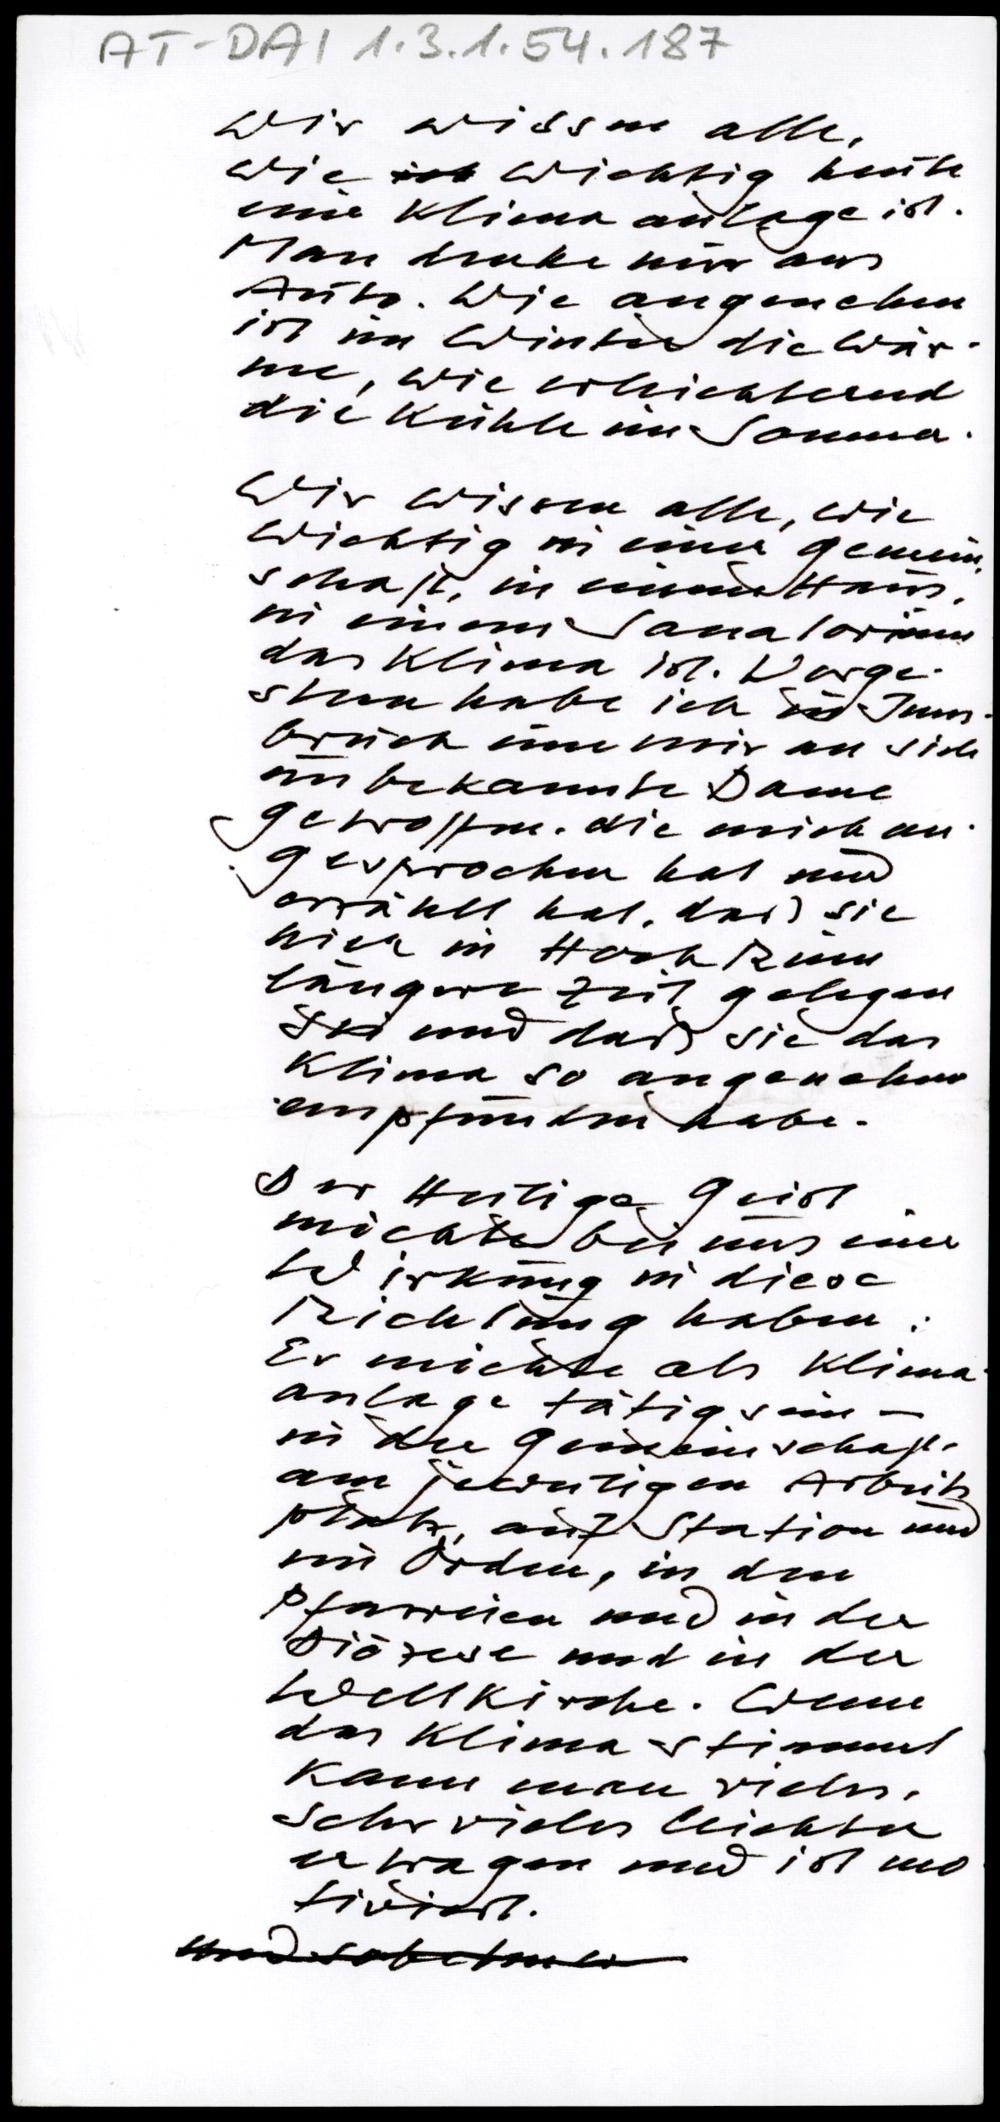 AT-DAI 1.3.1.54.187
Wir wissen alle,
wie wichtig heute
eine Klima anlage ist.
Man denke nur ans
Auto. Wie angenehm
ist im Winter die Wär-
me, wie erleichternd
die Kühle im Sommer.
Wir wissen alle, wie
wichtig in einer Gemein-
schaft, in einem Haus,
in einem Sanatorium
das Klima ist. Vorge-
stern habe ich in Inns-
bruck eine mir an sich
unbekannte Dame
getroffen. die mich an-
gesprochen hat und
erzählt hat, daß sie
hier in Hoch Rum
längere Zeit gelegen
sei und daß sie das
Klima so angenehm
empfunden habe.
Der Heilige Geist
möchte bei uns eine
Wirkung in diese
Richtung haben:
Er möchte als Klima-
anlage tätig sein –
in der Gemeinschaft
am jeweiligen Arbeits
platz, auf Station und
im Orden, in den
Pfarreien und in der
Diözese und in der
Weltkirche. Wenn
das Klima stimmt
kann man vieles,
sehr vieles leichter
ertragen und ist mo
tiviert.